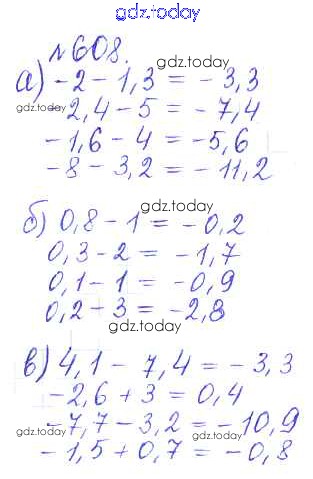 gdz.today
№608.
gdz.today
а) -2 - 1,3 = -3,3
gdz.today
-2,4 - 5 = -7,4
-1,6 - 4 = -5,6
-8 - 3,2 = -11,2
gdz.today
б) 0,8 - 1 = -0,2
gdz.today
0,3 - 2 = -1,7
0,1 - 1 = -0,9
gdz.today
0,2 - 3 = -2,8
gdz.today
в) 4,1 - 7,4 = -3,3
gdz.today
-2,6 + 3 = 0,4
-7,7 - 3,2 = -10,9
gdz.today
-1,5 + 0,7 = -0,8
gdz.today